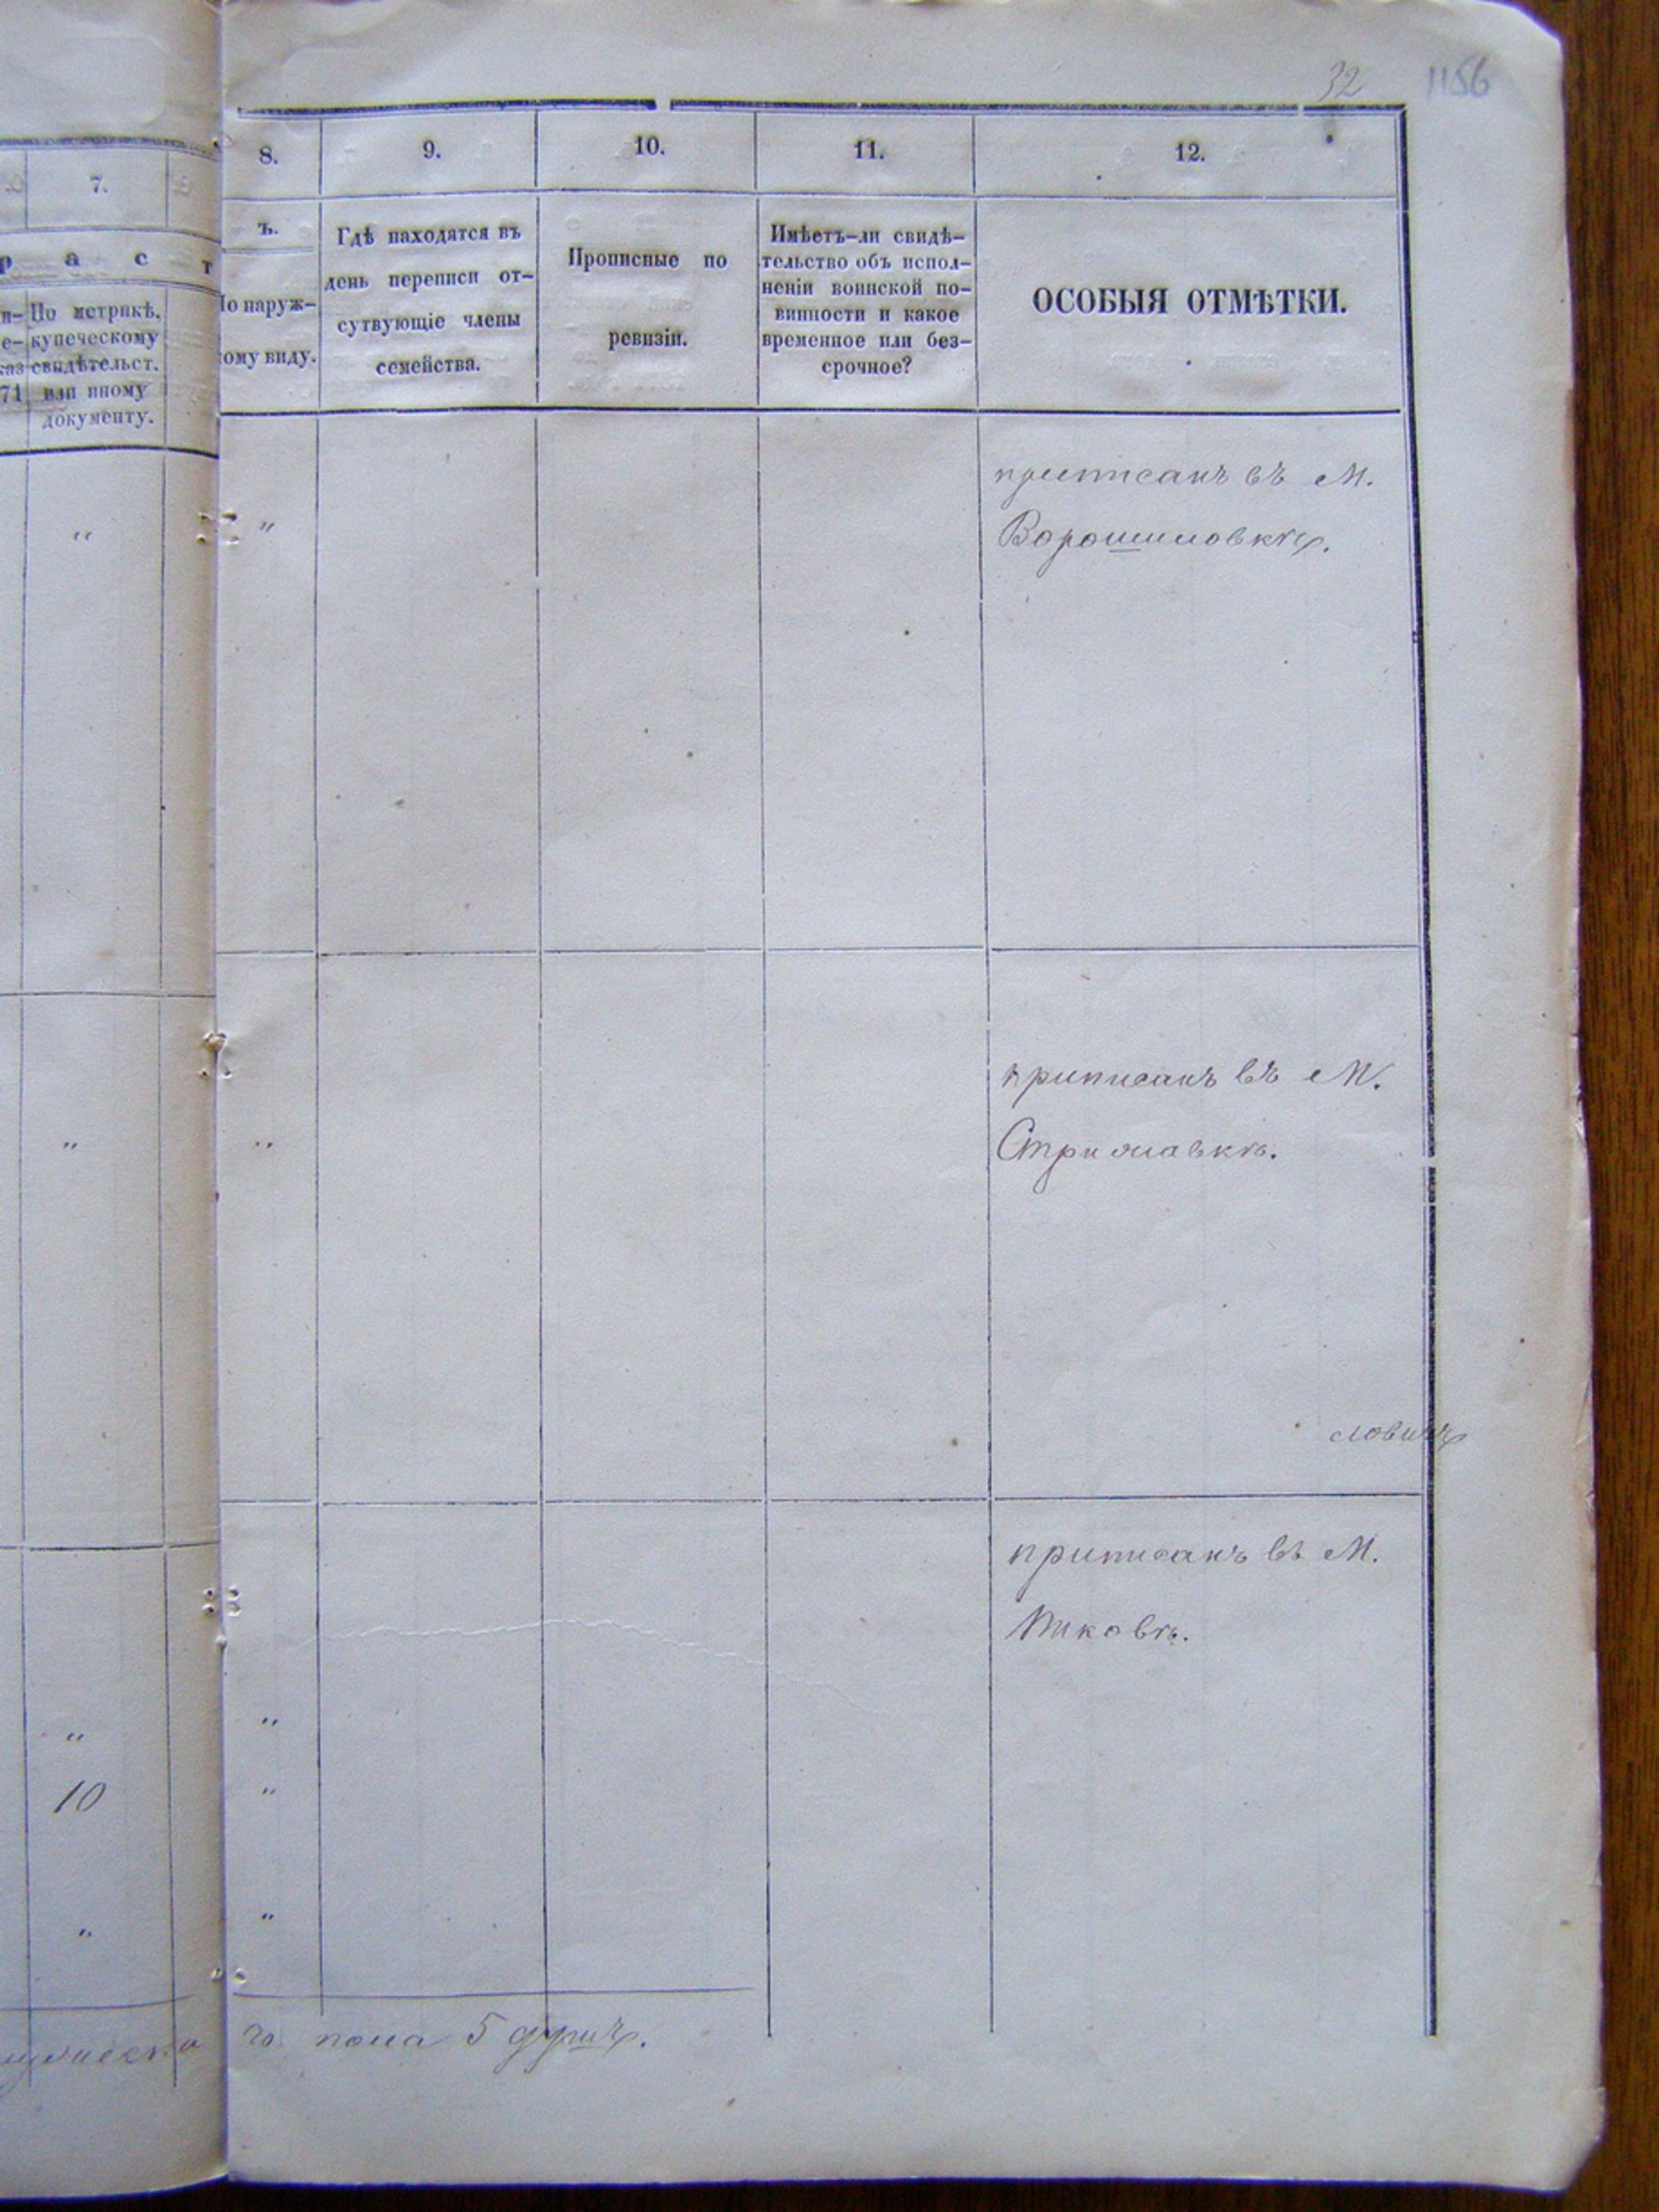 32 1156
7. 8. 9. 10. 11. 12.
р а с т
ъ.
По метрикѣ,
купеческому
свидѣтельст.
или иному
документу.
71
По наруж-
ному виду.
Гдѣ находятся въ
день переписи от-
сутвующіе члены
семейства.
Прописные по
ревизіи.
Имѣетъ-ли свидѣ-
тельство объ испол-
неніи воинской по-
винности и какое
временное или без-
срочное?
ОСОБЫЯ ОТМѢТКИ.
" "
приписанъ въ М.
Ворошиловкѣ.
" "
приписанъ въ М.
Стрижавкѣ.
приписанъ въ М.
Пиковѣ.
" "
10 "
" "
го пола 5 душъ.